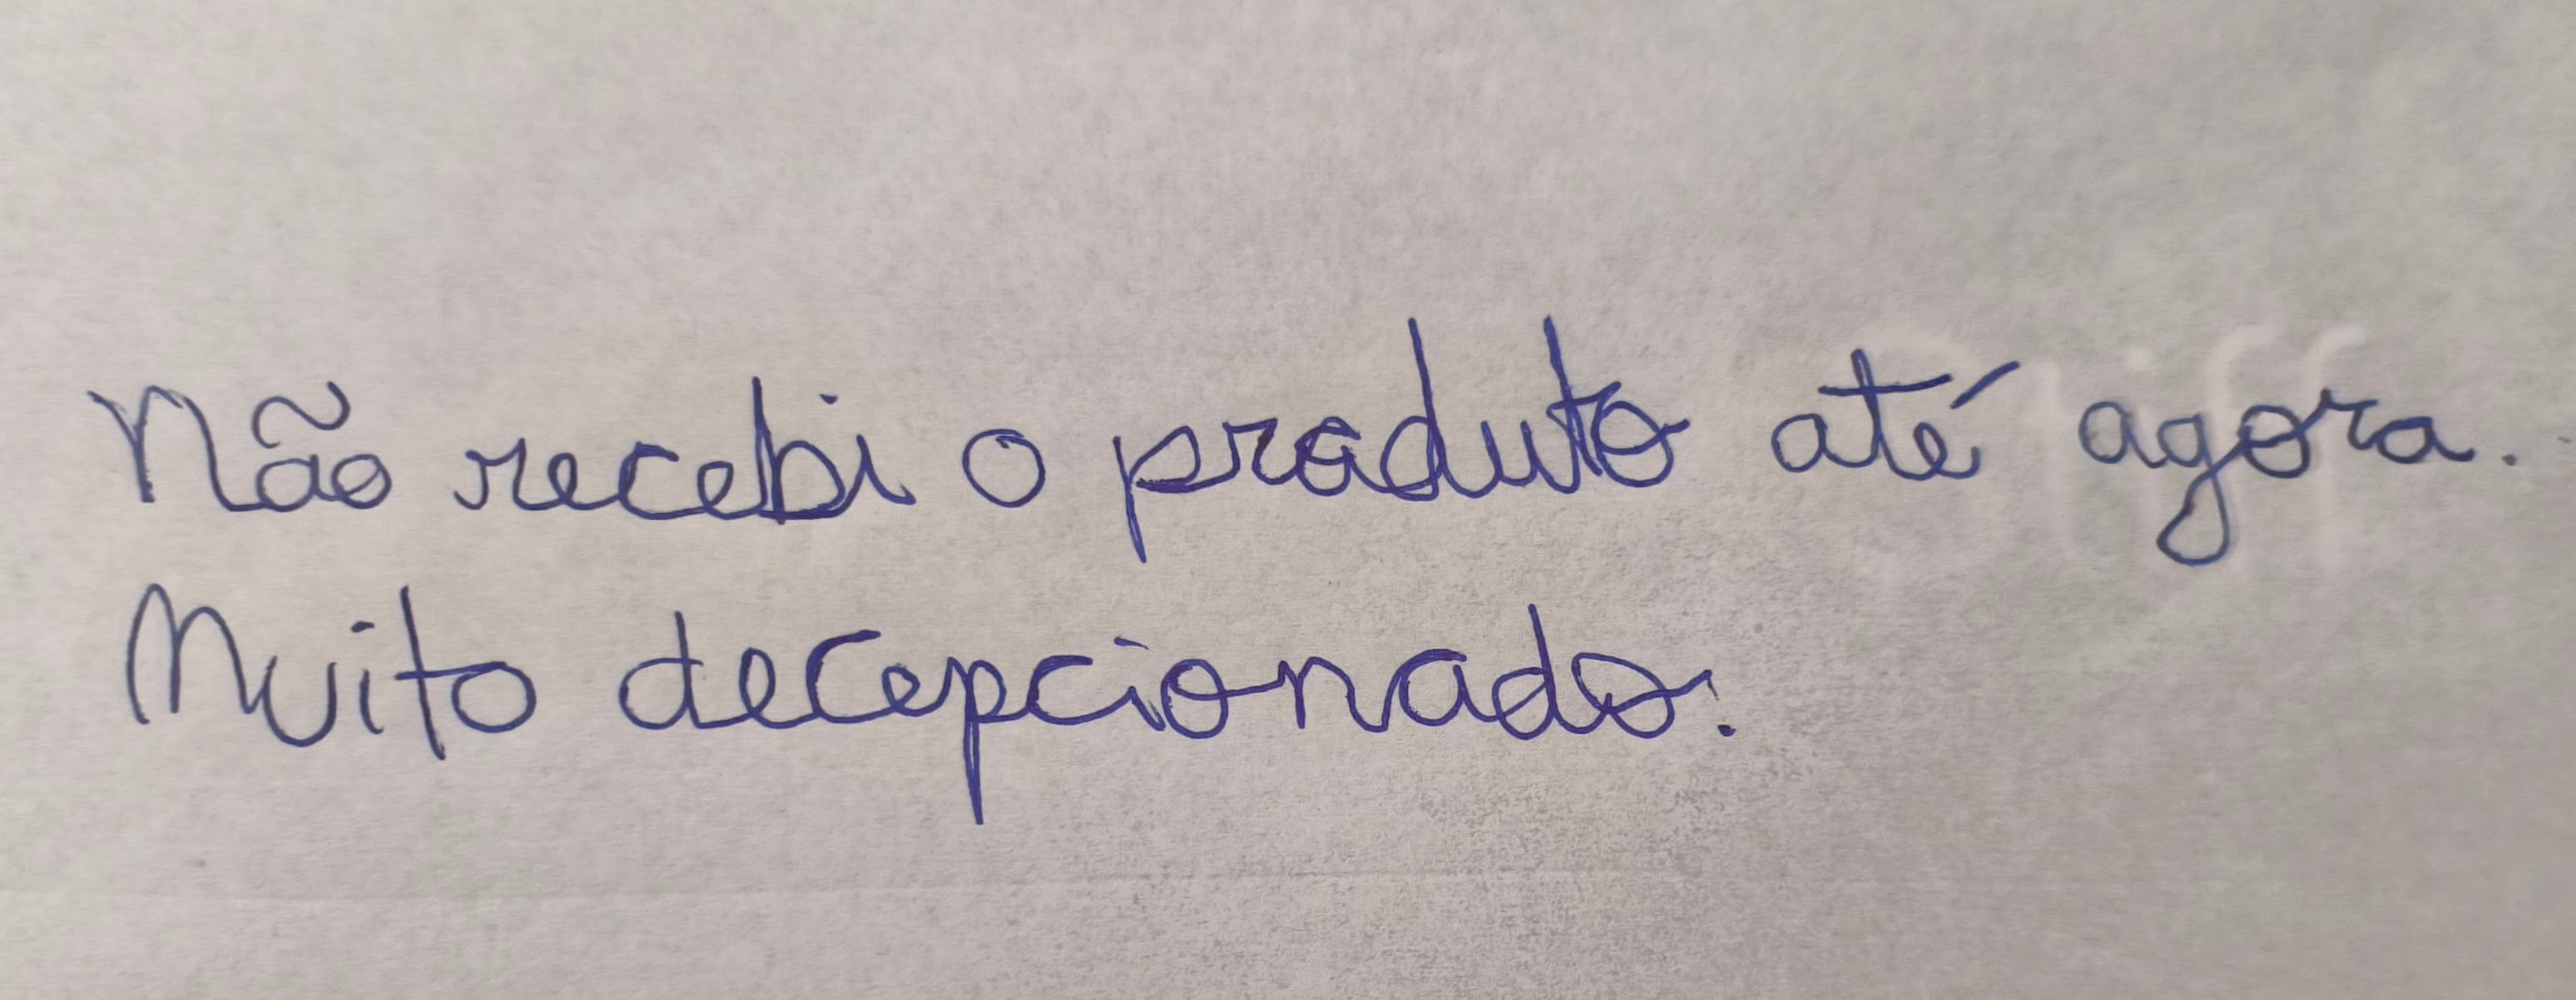 Não recebi o produto até agora.
Muito decepcionado.